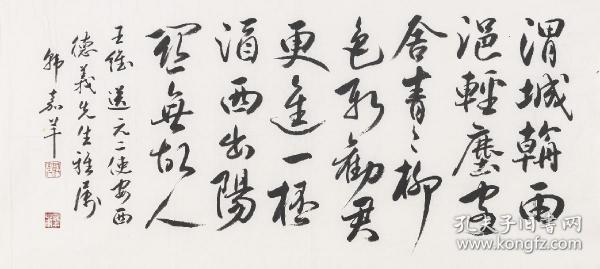 渭城朝雨
浥輕塵客
舍青〻柳
色新勸君
更進一桮
酒西出陽
關無故人
王維送元二使安西
德義先生雅屬
韓嘉羊
孔夫子旧书网
www.kongfz.com